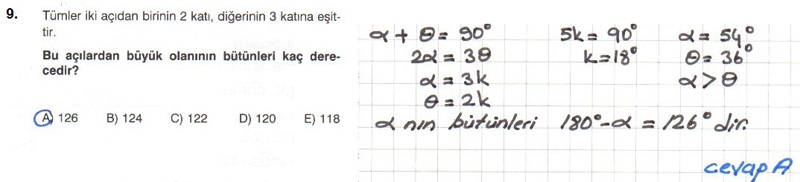 9. Tümler iki açıdan birinin 2 katı, diğerinin 3 katına eşit-
tir.
Bu açılardan büyük olanının bütünleri kaç dere-
cedir?
A) 126 B) 124 C) 122 D) 120 E) 118
α + θ = 90°
2α = 3θ
α = 3k
θ = 2k
5k = 90°
k = 18°
α = 54°
θ = 36°
α > θ
α nın bütünleri 180° - α = 126° dir.
cevap A